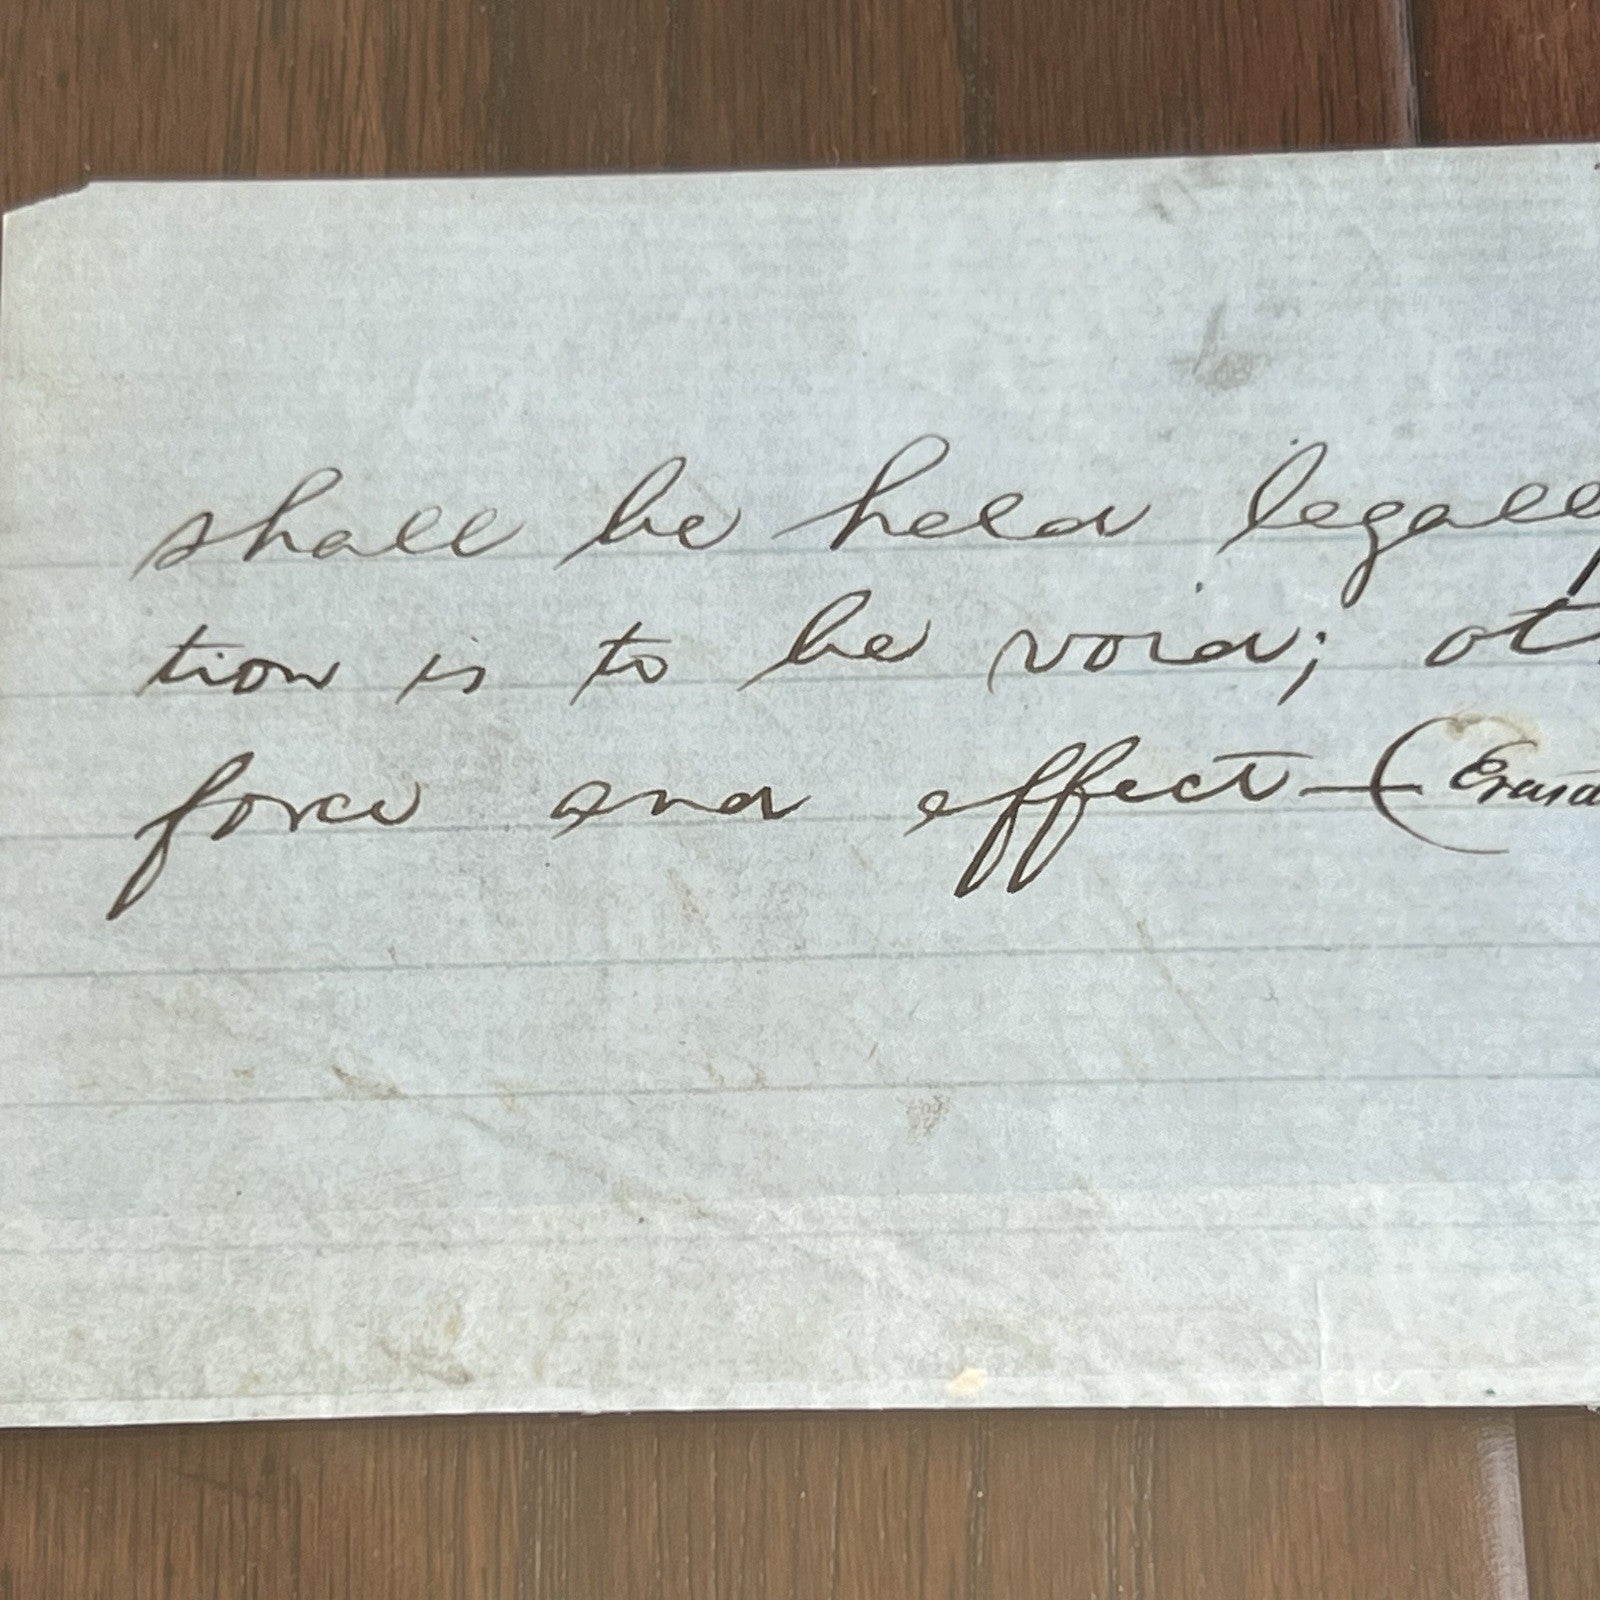 shall be held legall
tion is to be void; ot
force and effect — (Eras